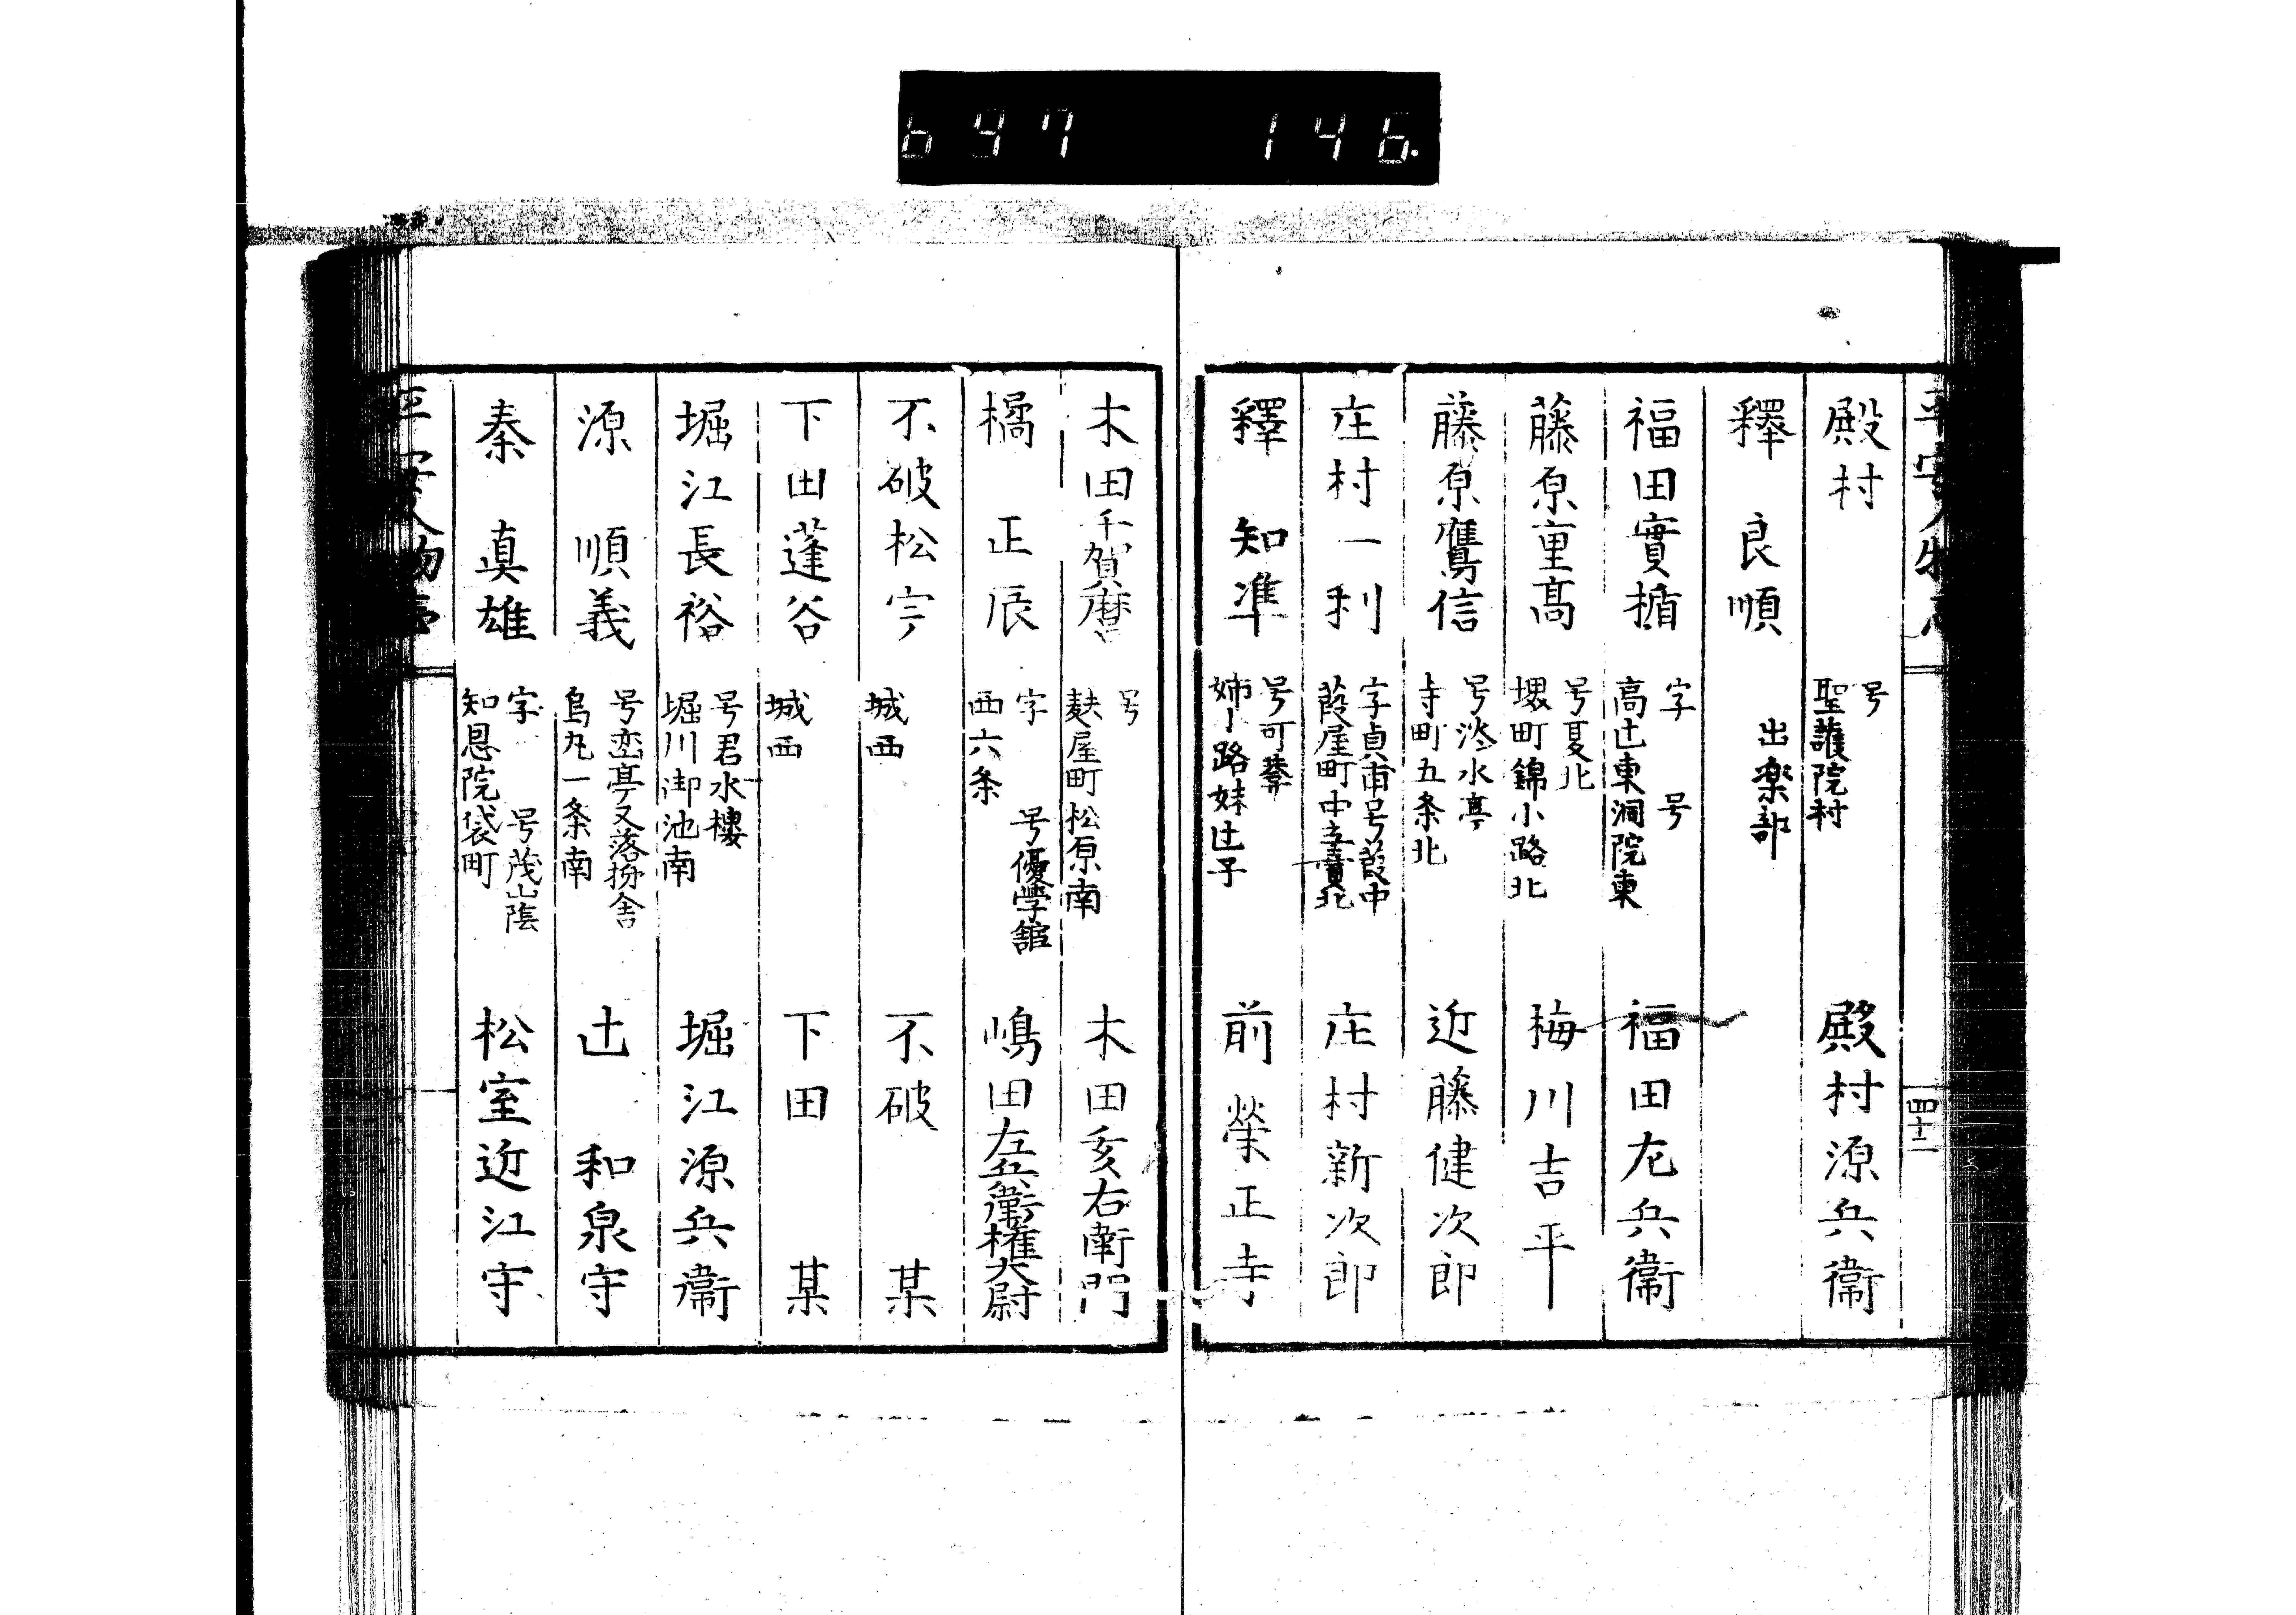 697 146.
平安人物志
四十二
殿村 号 聖護院村 殿村源兵衞
釋 良順 出楽部
福田實揗 字 号 高辻東洞院東 福田尤兵衞
藤原重高 号夏北 堺町錦小路北 梅川吉平
藤原鷹信 号淡水亭 寺町五条北 近藤健次郎
庄村一利 字貞甫号葭中 葭屋町中立賣北 庄村新次郎
釋 知準 号可 姉小路妹辻子 前 榮正寺
木田千賀麿 号 麸屋町松原南 木田亥右衛門
橘 正辰 字 号優學舘 西六条 嶋田左兵衞權大尉
不破松宇 城西 不破 某
下田蓬谷 城西 下田 某
堀江長裕 号君水樓 堀川御池南 堀江源兵衞
源 順義 号峦亭又落扮舎 烏丸一条南 辻 和泉守
秦 眞雄 字 号茂山蔭 知恩院袋町 松室近江守
平安人物志